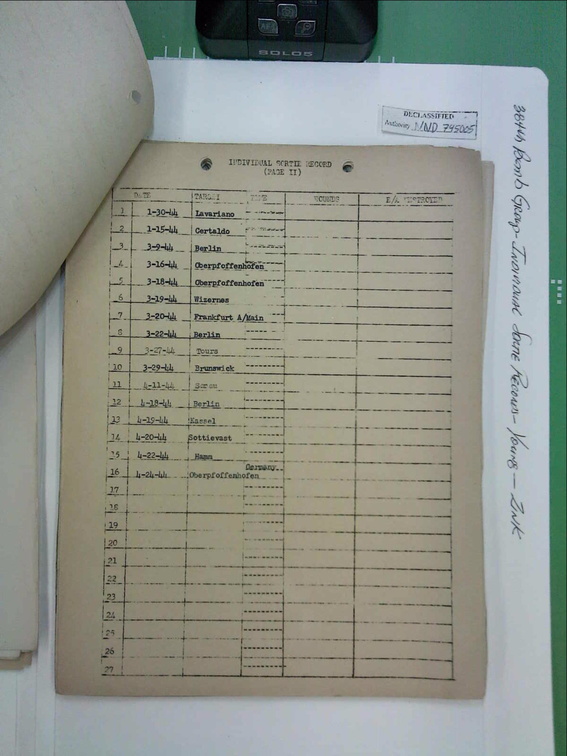 SOLOS
DECLASSIFIED
Authority NND 745005
384th Bomb Group - Individual Sortie Records - Young - Zink
INDIVIDUAL SORTIE RECORD
(PAGE II)
DATE TARGET ROUNDS E/A DESTROYED
1 1-30-44 Lavariano
2 1-15-44 Certaldo
3 3-9-44 Berlin
4 3-16-44 Oberpfoffenhofen
5 3-18-44 Oberpfoffenhofen
6 3-19-44 Wizernes
7 3-20-44 Frankfurt A/Main
8 3-22-44 Berlin
9 3-27-44 Tours
10 3-29-44 Brunswick
11 4-11-44 Sorau
12 4-18-44 Berlin
13 4-19-44 Kassel
14 4-20-44 Sottievast
15 4-22-44 Hamm
Germany
16 4-24-44 Oberpfoffenhofen
17
18
19
20
21
22
23
24
25
26
27